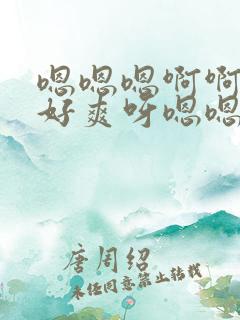 嗯嗯嗯啊啊
好爽呀嗯嗯
唐周绍
未经同意禁止转载